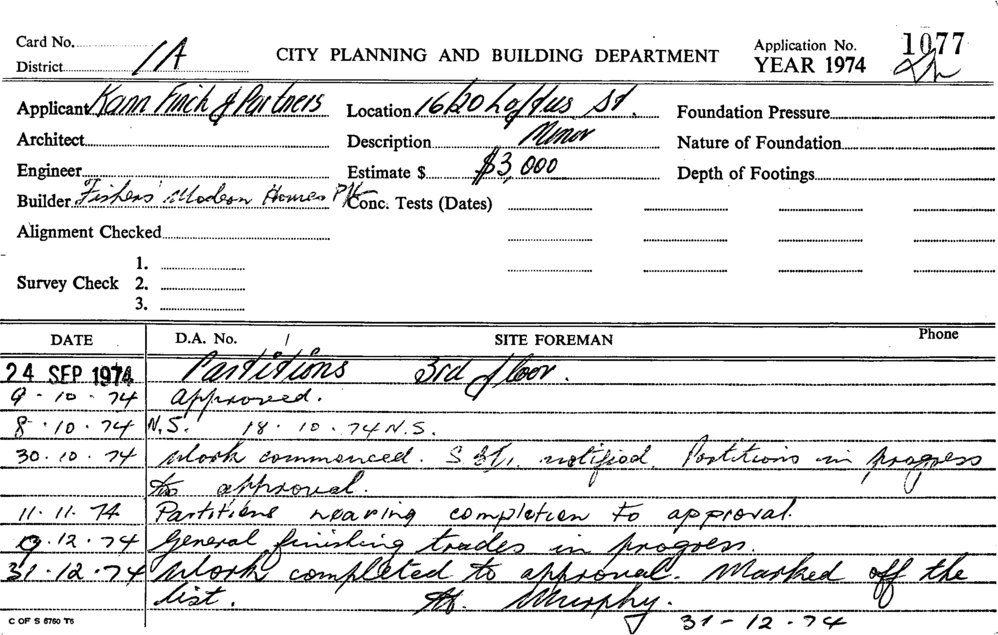 Card No.
District 1A
CITY PLANNING AND BUILDING DEPARTMENT
Application No. 1077
YEAR 1974
Applicant Kann Finch & Partners
Location 16/20 Loftus St.
Foundation Pressure
Architect
Description Minor
Nature of Foundation
Engineer
Estimate $ $3,000
Depth of Footings
Builder Fishers' Modern Homes P/L
Conc. Tests (Dates)
Alignment Checked
Survey Check
1.
2.
3.
DATE D.A. No. / SITE FOREMAN Phone
24 SEP 1974 Partitions 3rd floor.
9.10.74 approved.
8.10.74 N.S. 18.10.74 N.S.
30.10.74 Work commenced. notified. Partitions in progress
to approval.
11.11.74 Partitions nearing completion to approval.
9.12.74 General finishing trades in progress.
31.12.74 Work completed to approval. Marked off the
list. Murphy.
31-12-74
C OF S 5760 T5